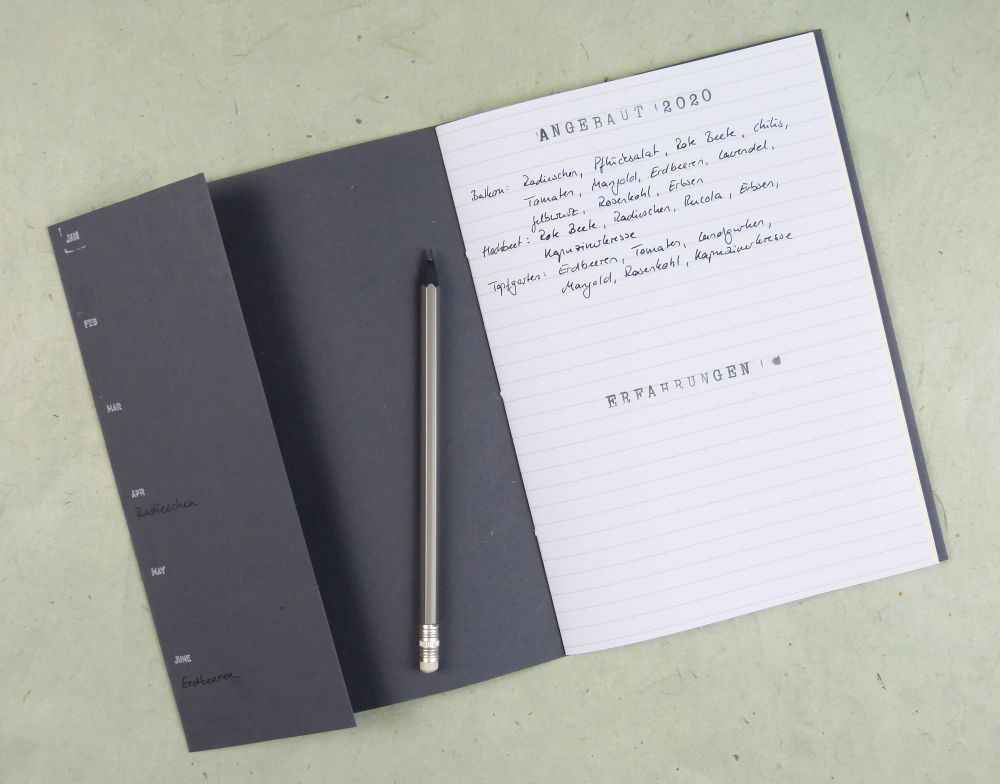 JAN
FEB
MAR
APR
Radieschen
MAY
JUNE
Erdbeeren
ANGEBAUT 2020
Balkon: Radieschen, Pflücksalat, Rote Beete, Chilis,
Tomaten, Mangold, Erdbeeren, Lavendel,
Gelbwurz, Rosenkohl, Erbsen
Hochbeet: Rote Beete, Radieschen, Rucola, Erbsen,
Kapuzinerkresse
Topfgarten: Erdbeeren, Tomaten, Landgurken,
Mangold, Rosenkohl, Kapuzinerkresse
ERFAHRUNGEN